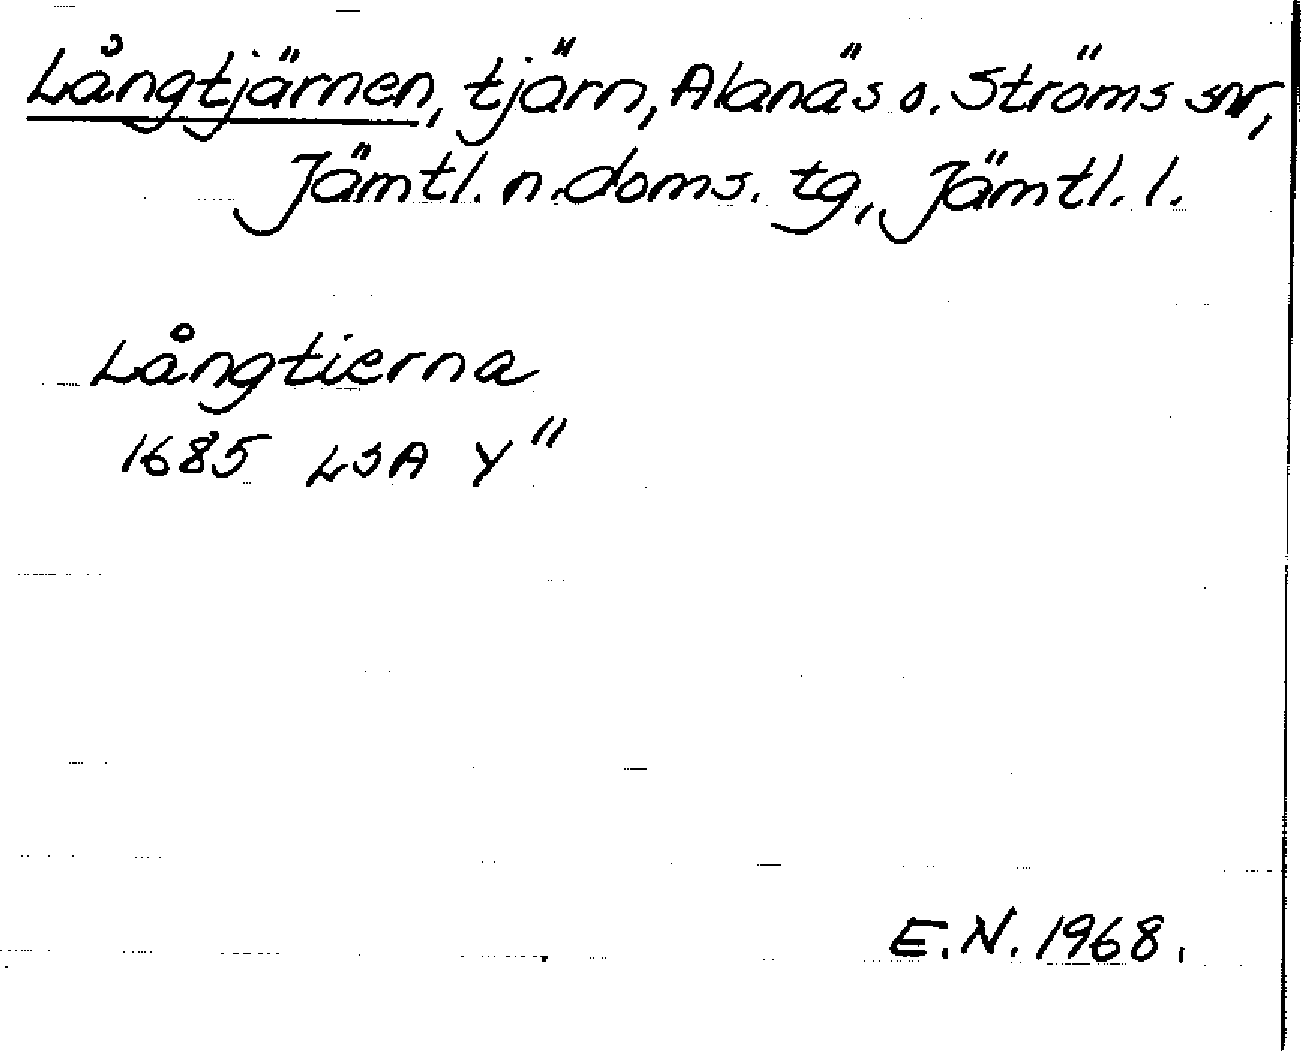 Långtjärnen, tjärn, Alanäs o. Ströms snr,
Jämtl. n. doms. tg, Jämtl. l.
Långtierna
1685 LSA Y"
E.N. 1968.